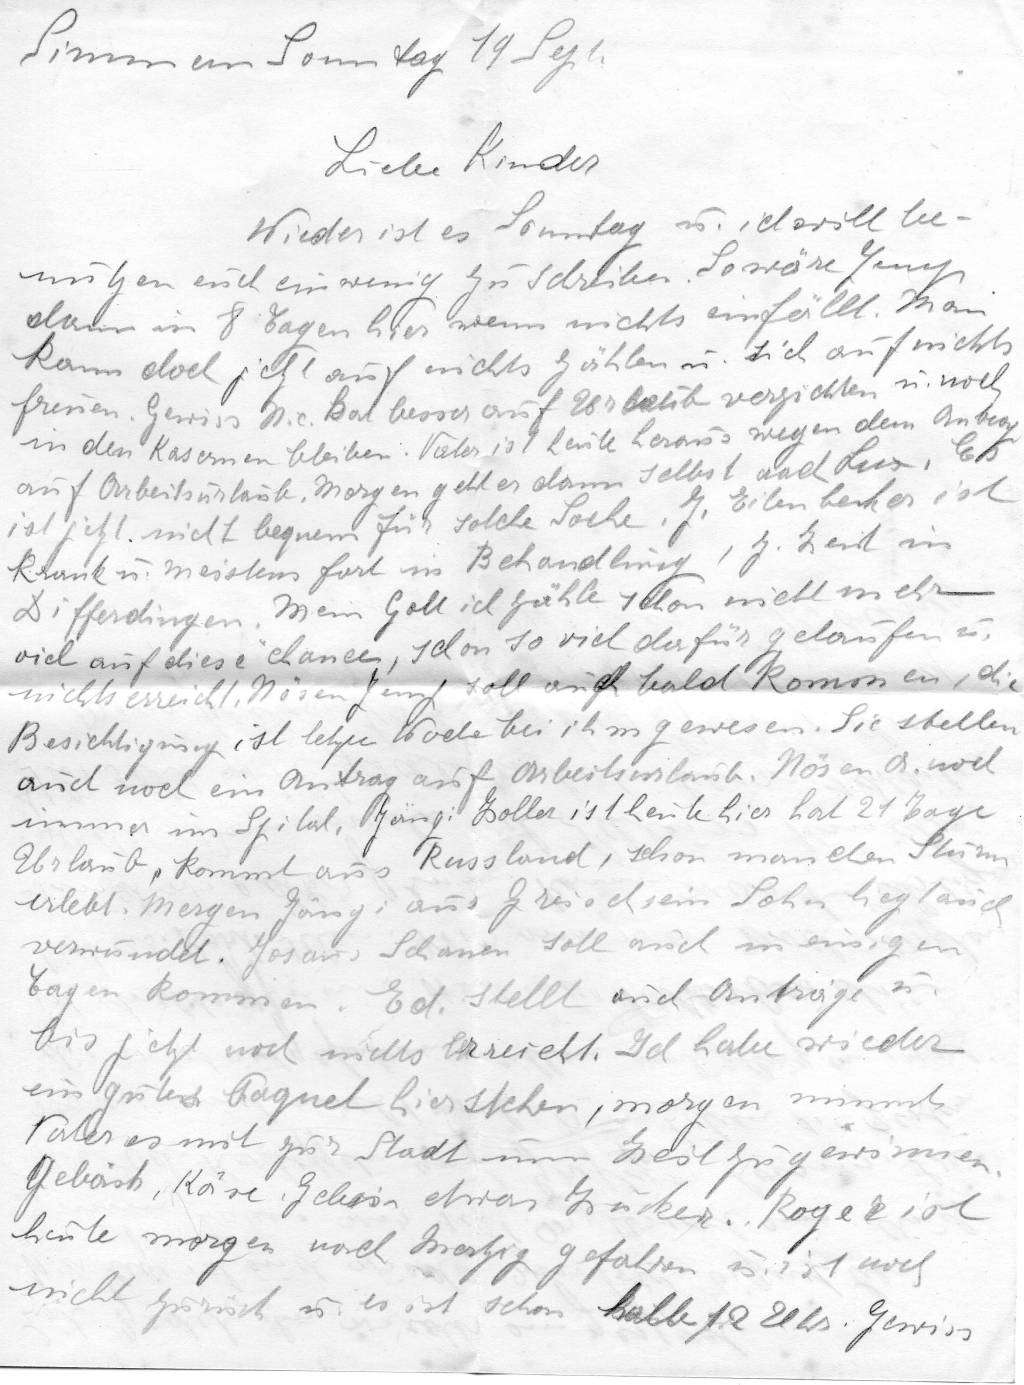 Simmern Sonntag 19 Sept.
Liebe Kinder
Wieder ist es Sonntag u. ich will be-
nutzen euch ein wenig zu schreiben. So wäre Jemp
dann in 8 Tagen hier wenn nichts einfällt. Man
kann doch jetzt auf nichts zählen u. sich auf nichts
freuen. Gewiss N.c. hat besser auf Urlaub verzichten u. noch
in den Kasernen bleiben. Vater ist heute heraus wegen dem Antrag
auf Arbeitsurlaub. Morgen geht er dann selbst nach Lux. Es
ist jetzt nicht bequem für solche Sache. J. Eilenbecker ist
krank u. meistens fort in Behandlung, z. Zeit in
Differdingen. Mein Gott ich zähle schon nicht mehr
viel auf diese chancen, schon so viel dafür gelaufen u.
nichts erreicht. Nösen Jemp soll auch bald kommen, die
Besichtigung ist letzte Woche bei ihm gewesen. Sie stellen
auch noch ein Antrag auf Arbeitsurlaub. Nösen A. noch
immer im Spital. Jängi Zoller ist heute hier hat 21 Tage
Urlaub, kommt aus Russland, schon manchen Sturm
erlebt. Mergen Jängi aus Greisch sein Sohn liegt auch
verwundet. Jos aus Schanen soll auch in einigen
Tagen kommen. Ed. stellt auch Anträge u.
bis jetzt noch nichts erreicht. Ich habe wieder
ein gutes Paquet hier stehen, morgen nimmt
Vater es mit zur Stadt um Zeit zu gewinnen.
Gebäck, Käse, etwas Zucker.. Roger ist
heute morgen nach Mertzig gefahren u. ist noch
nicht zurück u. es ist schon halb 12 Uhr. Gewiss